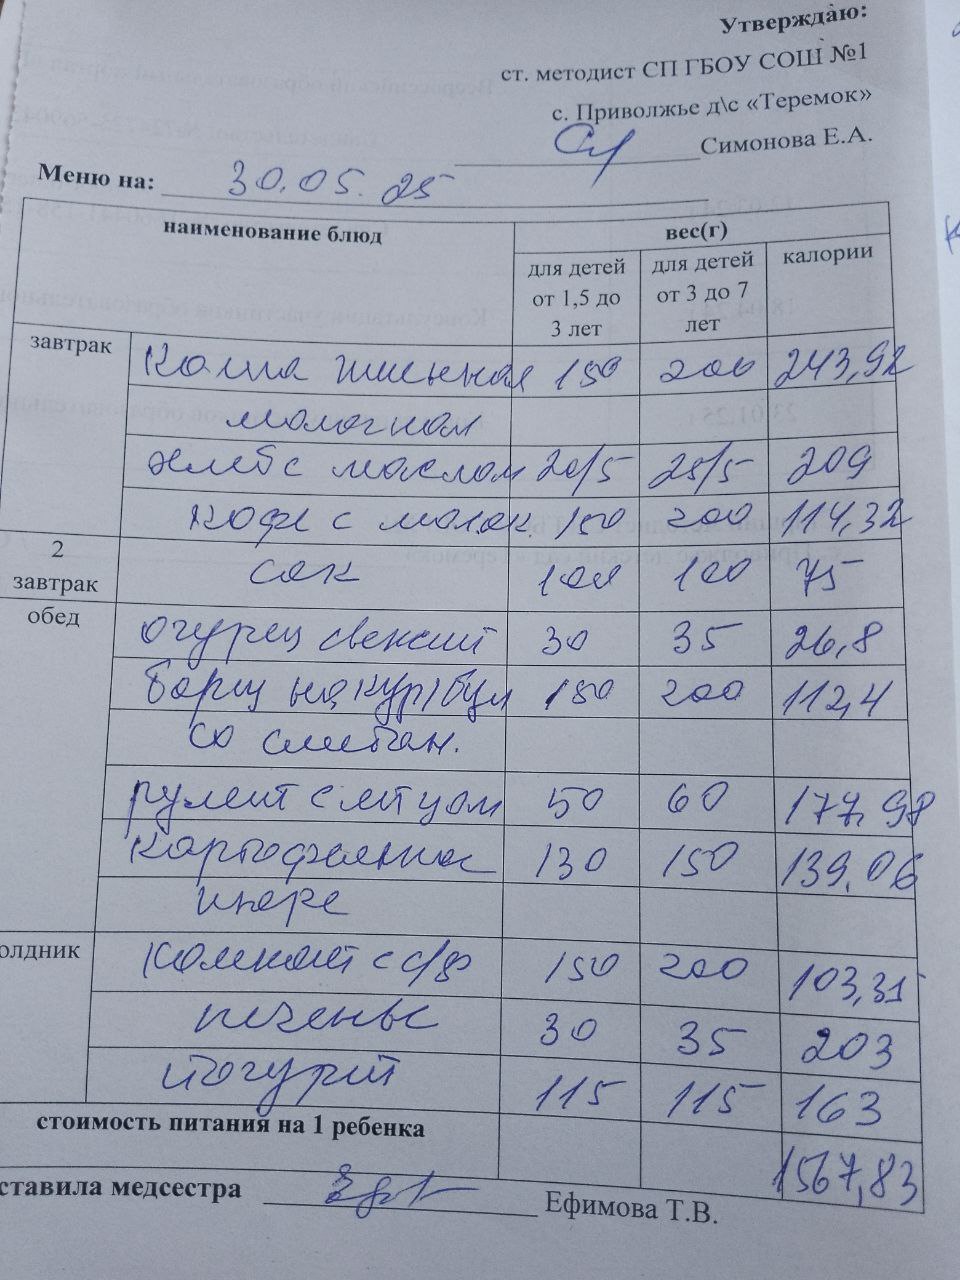 Утверждаю:
ст. методист СП ГБОУ СОШ №1
с. Приволжье д\с «Теремок»
Симонова Е.А.
Меню на: 30.05.25
наименование блюд вес(г)
для детей от 1,5 до 3 лет для детей от 3 до 7 лет калории
завтрак Каша пшенная 150 200 243,92
молочная
хлеб с маслом 20/5 25/5 209
кофе с молок. 150 200 114,32
2 завтрак сок 100 100 75
обед огурец свежий 30 35 26,8
борщ на кур/бул 150 200 112,4
со сметан.
рулет с яйцом 50 60 177,98
картофельное 130 150 139,06
пюре
олдник компот с с/ф 150 200 103,35
печенье 30 35 203
йогурт 115 115 163
стоимость питания на 1 ребенка 1567,83
ставила медсестра Ефимова Т.В.